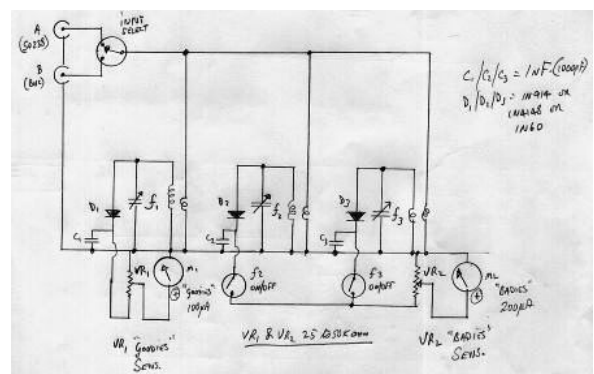 A
(SO239)
B
(BNC)
INPUT
SELECT
C1/C2/C3 = 1NF (1000pF)
D1/D2/D3 = IN914 or
IN4148 or
IN60
D1
f1
D2
f2
D3
f3
C1
C2
C3
VR1
M1
"GOODIES"
100µA
f2
ON/OFF
f3
ON/OFF
VR2
M2
"BADIES"
200µA
VR1 "GOODIES"
SENS.
VR1 & VR2 25 to 50K ohm
VR2 "BADIES"
SENS.